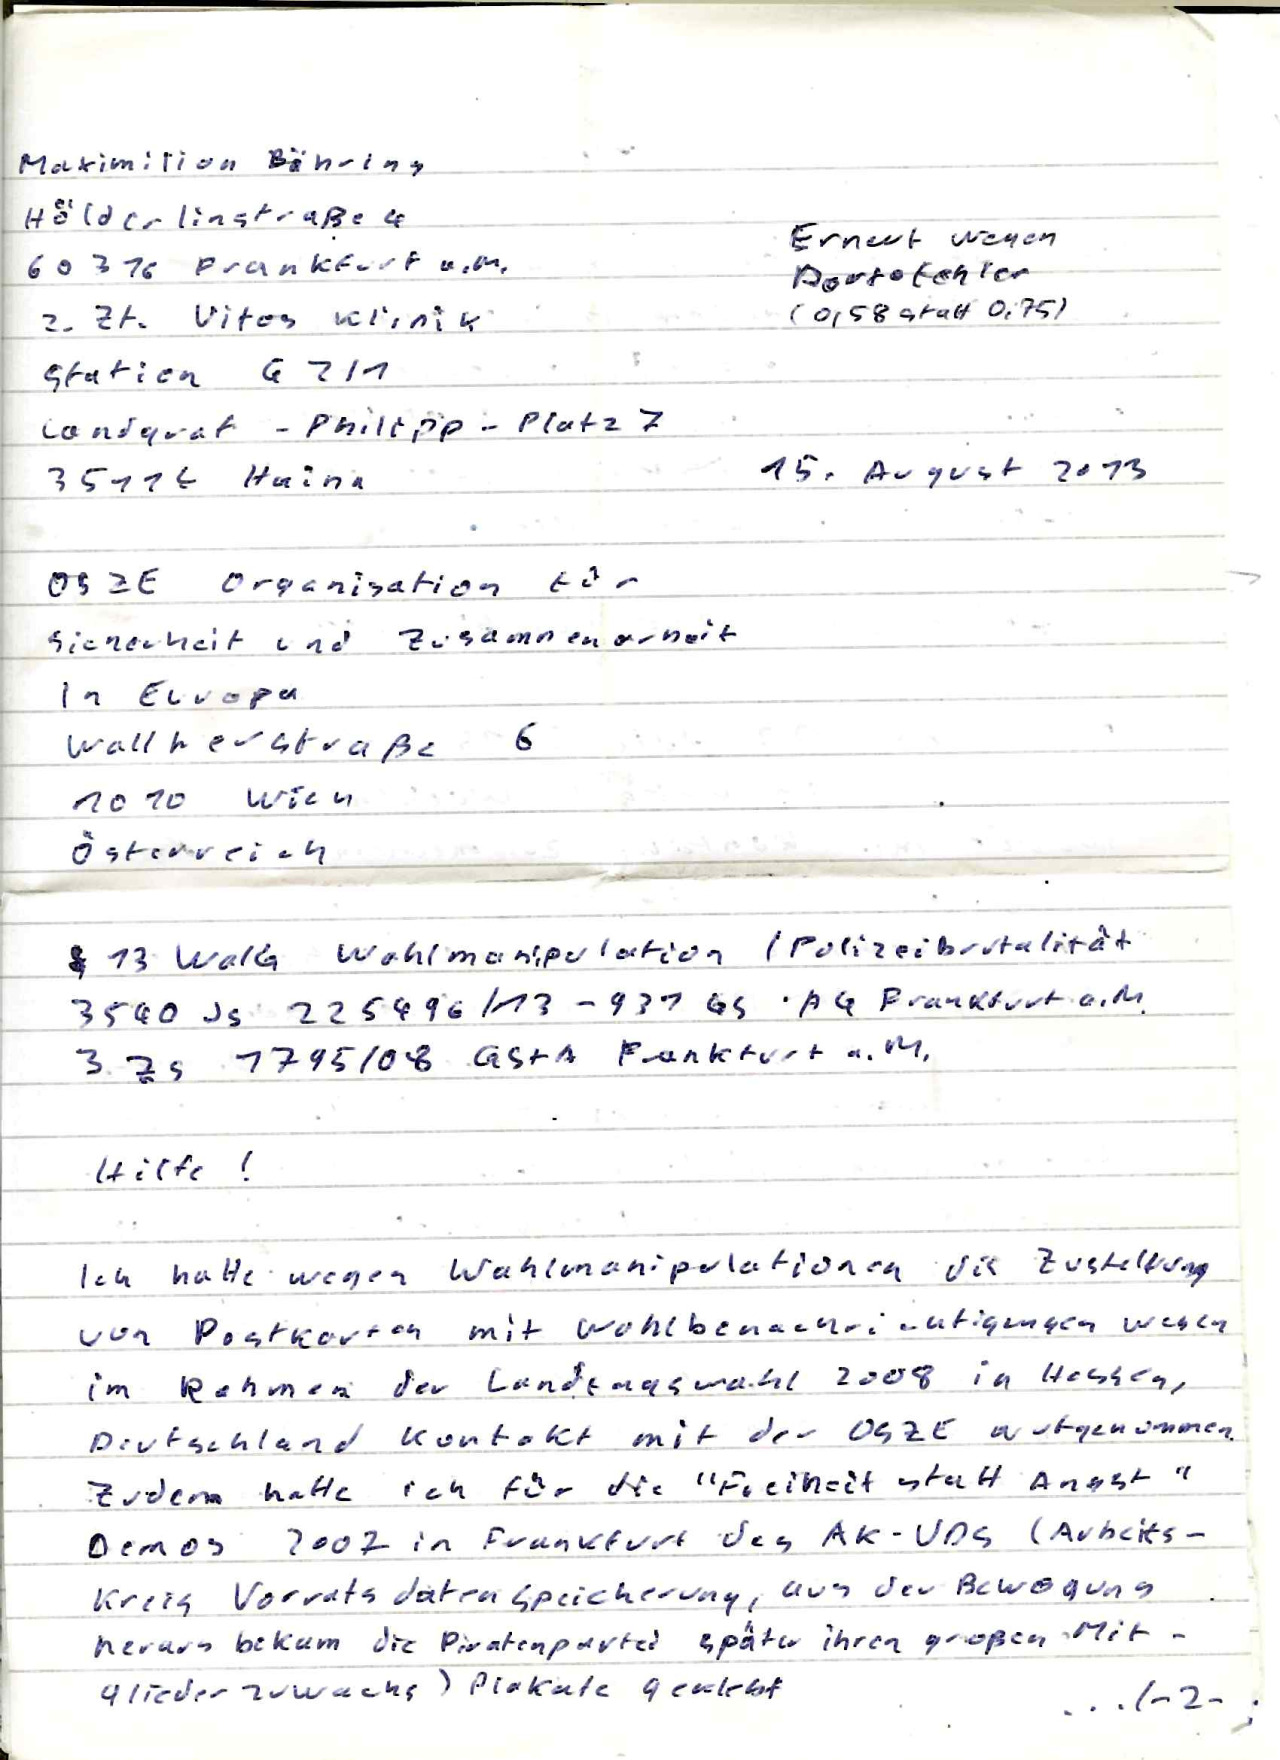 Maximilian Bähring
Hölderlinstraße 4
60316 Frankfurt a.M.
Erneut wegen
Portofehler
(0,58 statt 0,75)
z. Zt. Vitos Klinik
Station G 2/1
Landgraf - Philipp - Platz 7
35114 Haina
15. August 2013
OSZE Organisation für
Sicherheit und Zusammenarbeit
in Europa
Wallnerstraße 6
1010 Wien
Österreich
§ 13 WalG Wahlmanipulation / Polizeibrutalität
3540 Js 225496/13 - 931 Gs · AG Frankfurt a.M.
3 Zs 1795/08 GStA Frankfurt a.M.
Hilfe !
Ich hatte wegen Wahlmanipulationen die Zustellung
von Postkarten mit Wohlbenachrichtigungen wegen
im Rahmen der Landtagswahl 2008 in Hessen,
Deutschland Kontakt mit der OSZE aufgenommen.
Zudem hatte ich für die "Freiheit statt Angst"
Demos 2007 in Frankfurt des AK-VDS (Arbeits-
kreis Vorratsdatenspeicherung, aus der Bewegung
heraus bekam die Piratenpartei später ihren großen Mit-
gliederzuwachs) Plakate geklebt
.../-2-